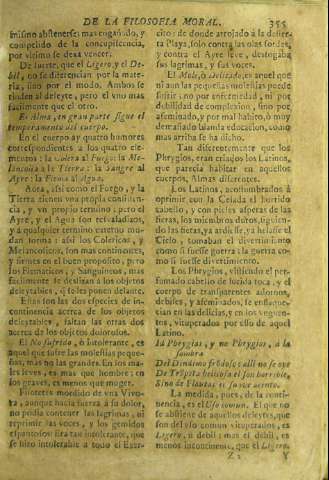 DE LA FILOSOFIA MORAL. 355
mismo abstenerse; mas engañado, y
competido de la concupiscencia,
por vitimo se dexa vencer.
De suerte, que el Ligero, y el De-
bil, no se diferencian por la mate-
ria, sino por el modo. Ambos se
rinden al deleyte, pero el vno mas
facilmente que el otro.
El Alma, en gran parte sigue el
temperamento del cuerpo.
En el cuerpo ay quatro humores
correspondientes a los quatro ele-
mentos: la Colera al Fuego: la Me-
lancolia a la Tierra: la Sangre al
Ayre: la Flema al Agua.
Aora, assi como el Fuego, y la
Tierra tienen vna propia continen-
cia, y vn propio termino; pero el
Ayre, y el Agua son resvaladizos,
y a qualquier termino externo mu-
dan forma: assi los Colericos, y
Melancolicos, son mas continentes,
y firmes en el buen proposito; pero
los Flematicos, y Sanguineos, mas
facilmente se deslizan a los objetos
deleytables, q̃ toleran poner delante.
Estas son las dos especies de in-
continencia acerca de los objetos
deleytables, faltan las otras dos
acerca de los objetos dolorosos.
El No sufrido, ò Intolerante, es
aquel que sufre las molestias peque-
ñas, mas no las grandes. En los ma-
les leves, es mas que hombre; en
los graves, es menos que muger.
Filoctetes mordido de vna Vivo-
ra, aunque hazia fuerça à su dolor,
no podia contener las lagrimas, ni
reprimir las voces, y los gemidos
espantosos: era tan intolerante, que
se hizo intolerable a todo el Exer-
cito: de donde arrojado a la desier-
ta Playa, solo contra las olas sordas,
y contra el Ayre leve, desfogaba
sus lagrimas, y sus voces.
El Mole, ò Delicado, es aquel que
ni aun las pequeñas molestias puede
sufrir: no por enfermedad, ni por
debilidad de complexion, sino por
afeminado, y por mal habito, ò muy
demasiado blanda educacion, como
mas arriba se ha dicho.
Tan diferentemente que los
Phrygios, eran criados los Latinos,
que parecia habitar en aquellos
cuerpos, Almas diferentes.
Los Latinos, acostumbrados à
oprimir con la Celada el horrido
cabello, y con pieles asperas de las
fieras, los miembros duros, siguien-
do las fieras, ya ardiesse, ya helasse el
Cielo, tomaban el divertimiento
como si fuesse guerra: la guerra co-
mo si fuesse divertimiento.
Los Phrygios, vistiendo el per-
fumado cabello de lucida toca, y el
cuerpo de transparentes adornos,
debiles, y afeminados, se enflaque-
cian en las delicias, y en los vnguen-
tos, vituperados por esso de aquel
Latino.
Id Phrygias, y no Phrygios, a la
sombra
Del Dindimo frondoso: alli no se oye
De Trompeta belicosa el son horrible,
Sino de Flautas el suave acento.
La medida, pues, de la conti-
nencia, es el Uso comun. El que no
se abstiene de aquellos deleytes, que
son del vso comun vituperados, es
Ligero, ù debil: mas el debil, es
menos incontinente, que el Ligero.
Z 2 Y